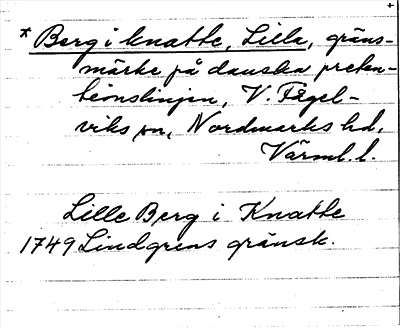 * Berg i knatte, Lilla, gräns-
märke på danska preten-
tionslinjen, V. Fågel-
viks sn, Nordmarks hd,
Värml. l.
Lille Berg i Knatte
1749 Lindgrens gränsk.